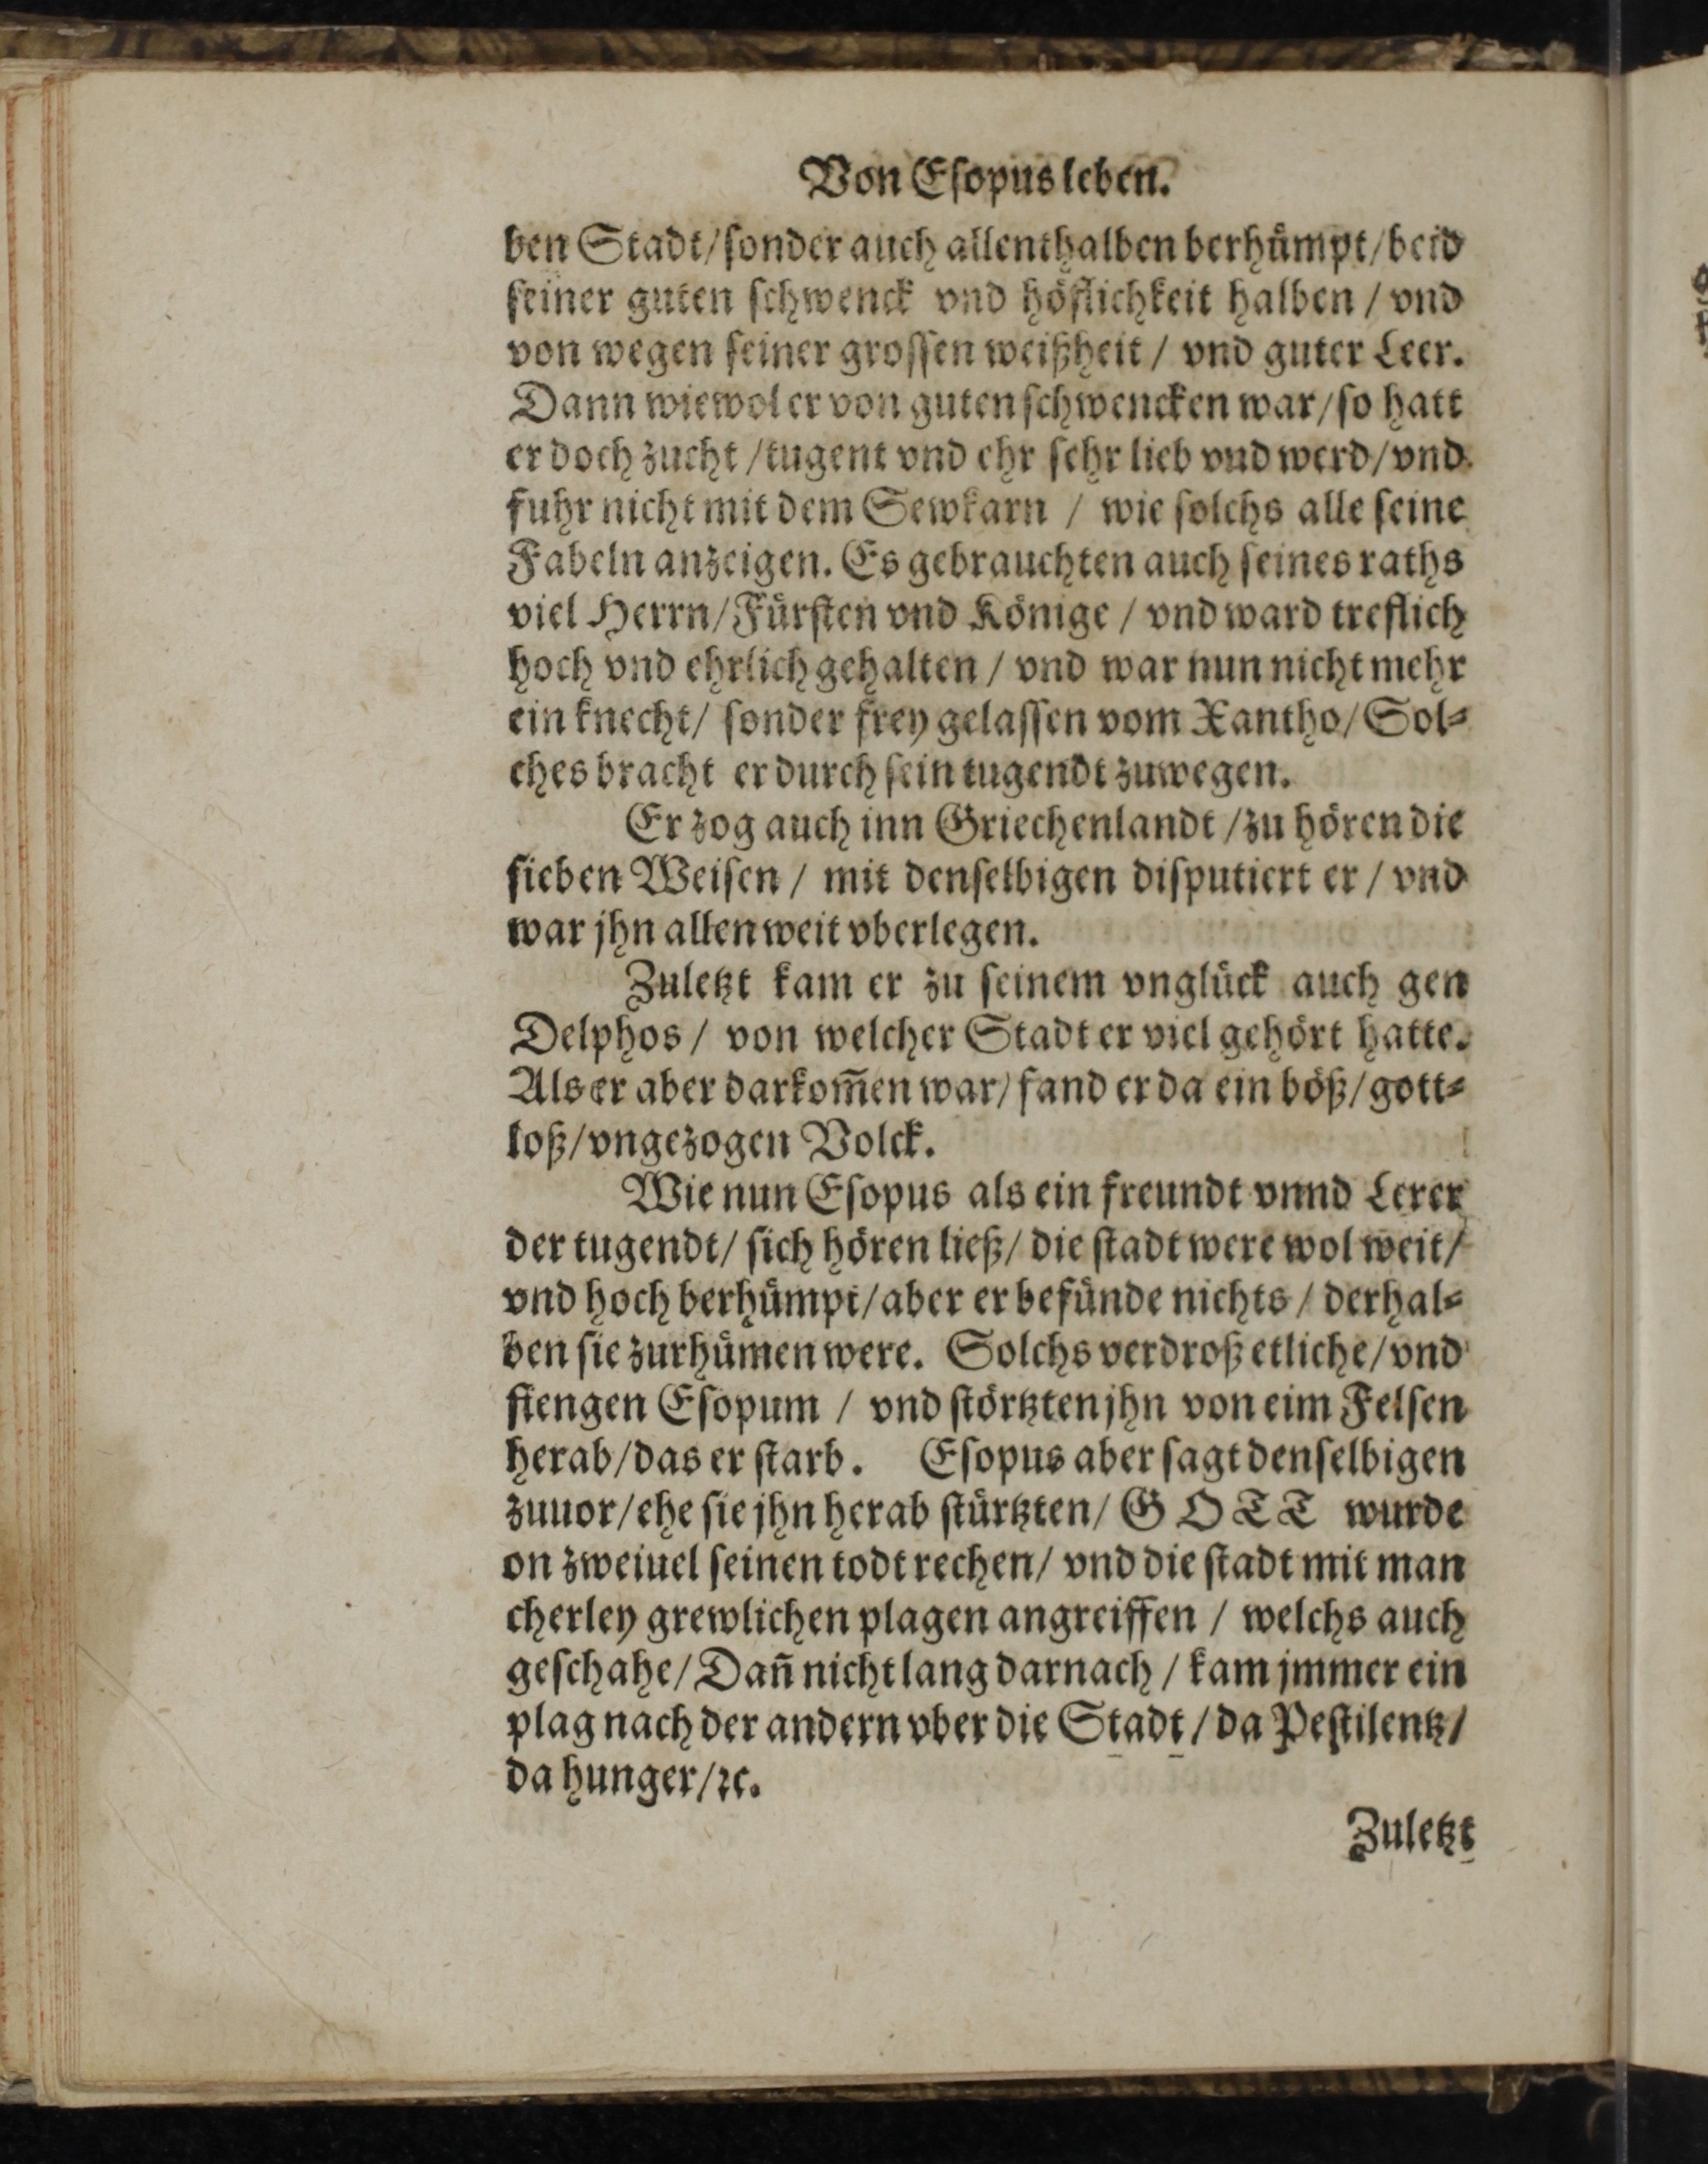 Von Eſopus leben.
ben Stadt/ ſonder auch allenthalben berhuͤmpt/ beid
ſeiner guten ſchwenck vnd hoͤflichkeit halben / vnd
von wegen ſeiner groſſen weißheit / vnd guter Leer.
Dann wiewol er von guten ſchwencken war/ ſo hatt
er doch zucht / tugent vnd ehr ſehr lieb vnd werd/ vnd
fuhr nicht mit dem Sewkarn / wie ſolchs alle ſeine
Fabeln anzeigen. Es gebrauchten auch ſeines raths
viel Herrn/ Fuͤrſten vnd Koͤnige / vnd ward treflich
hoch vnd ehrlich gehalten / vnd war nun nicht mehr
ein knecht/ ſonder frey gelaſſen vom Xantho/ Sol⸗
ches bracht er durch ſein tugendt zuwegen.
Er zog auch inn Griechenlandt / zu hoͤren die
ſieben Weiſen / mit denſelbigen diſputiert er / vnd
war jhn allen weit vberlegen.
Zuletzt kam er zu ſeinem vngluͤck auch gen
Delphos / von welcher Stadt er viel gehoͤrt hatte.
Als er aber darkom̄en war/ fand er da ein boͤß/ gott⸗
loß/ vngezogen Volck.
Wie nun Eſopus als ein freundt vnnd Lerer
der tugendt/ ſich hoͤren ließ/ die ſtadt were wol weit/
vnd hoch berhuͤmpt/ aber er befuͤnde nichts / derhal⸗
ben ſie zurhuͤmen were. Solchs verdroß etliche/ vnd
fiengen Eſopum / vnd ſtoͤrtzten jhn von eim Felſen
herab/ das er ſtarb. Eſopus aber ſagt denſelbigen
zuuor/ ehe ſie jhn herab ſtuͤrtzten/ G O T T wurde
on zweiuel ſeinen todt rechen/ vnd die ſtadt mit man
cherley grewlichen plagen angreiffen / welchs auch
geſchahe/ Dan̄ nicht lang darnach / kam jmmer ein
plag nach der andern vber die Stadt / da Peſtilentz/
da hunger/ ꝛc.
Zuletzt